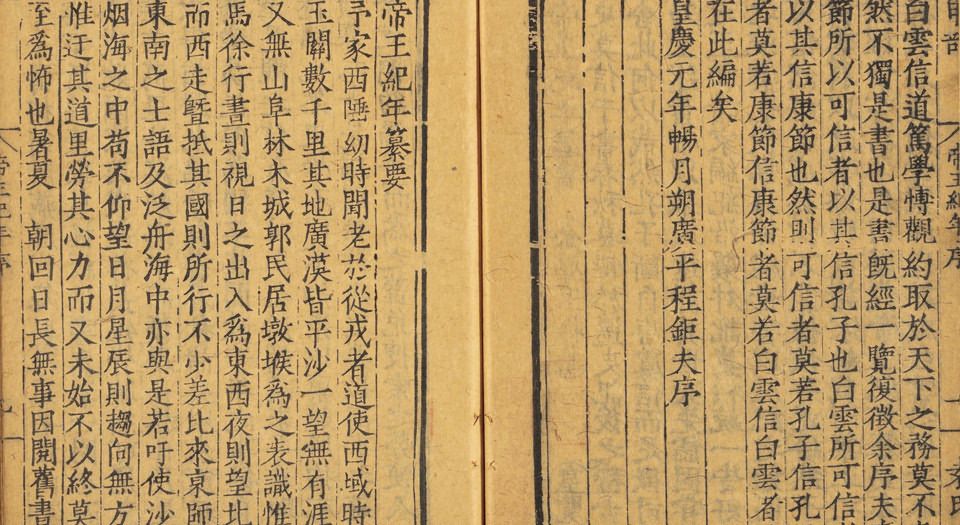 白雲信道篤學博觀約取於天下之務莫不
然不獨是書也是書旣經一覽復徵余序夫
節所以可信者以其信孔子也白雲所可信
以其信康節也然則可信者莫若孔子信孔
者莫若康節信康節者莫若白雲信白雲者
在此編矣
皇慶元年暢月朔廣平程鉅夫序
帝王紀年纂要
予家西陲幼時聞老於從戎者道使西域時
玉關數千里其地廣漠皆平沙一望無有涯
又無山阜林木城郭民居墩堠爲之表識惟
馬徐行晝則視日之出入爲東西夜則望北
而西走曁抵其國則所行不少差比來京師
東南之士語及泛舟海中亦與是若吁使沙
烟海之中苟不仰望日月星辰則趨向無方
惟迂其道里勞其心力而又未始不以終莫
至爲怖也暑夏 朝回日長無事因閱舊書
帝王紀年序